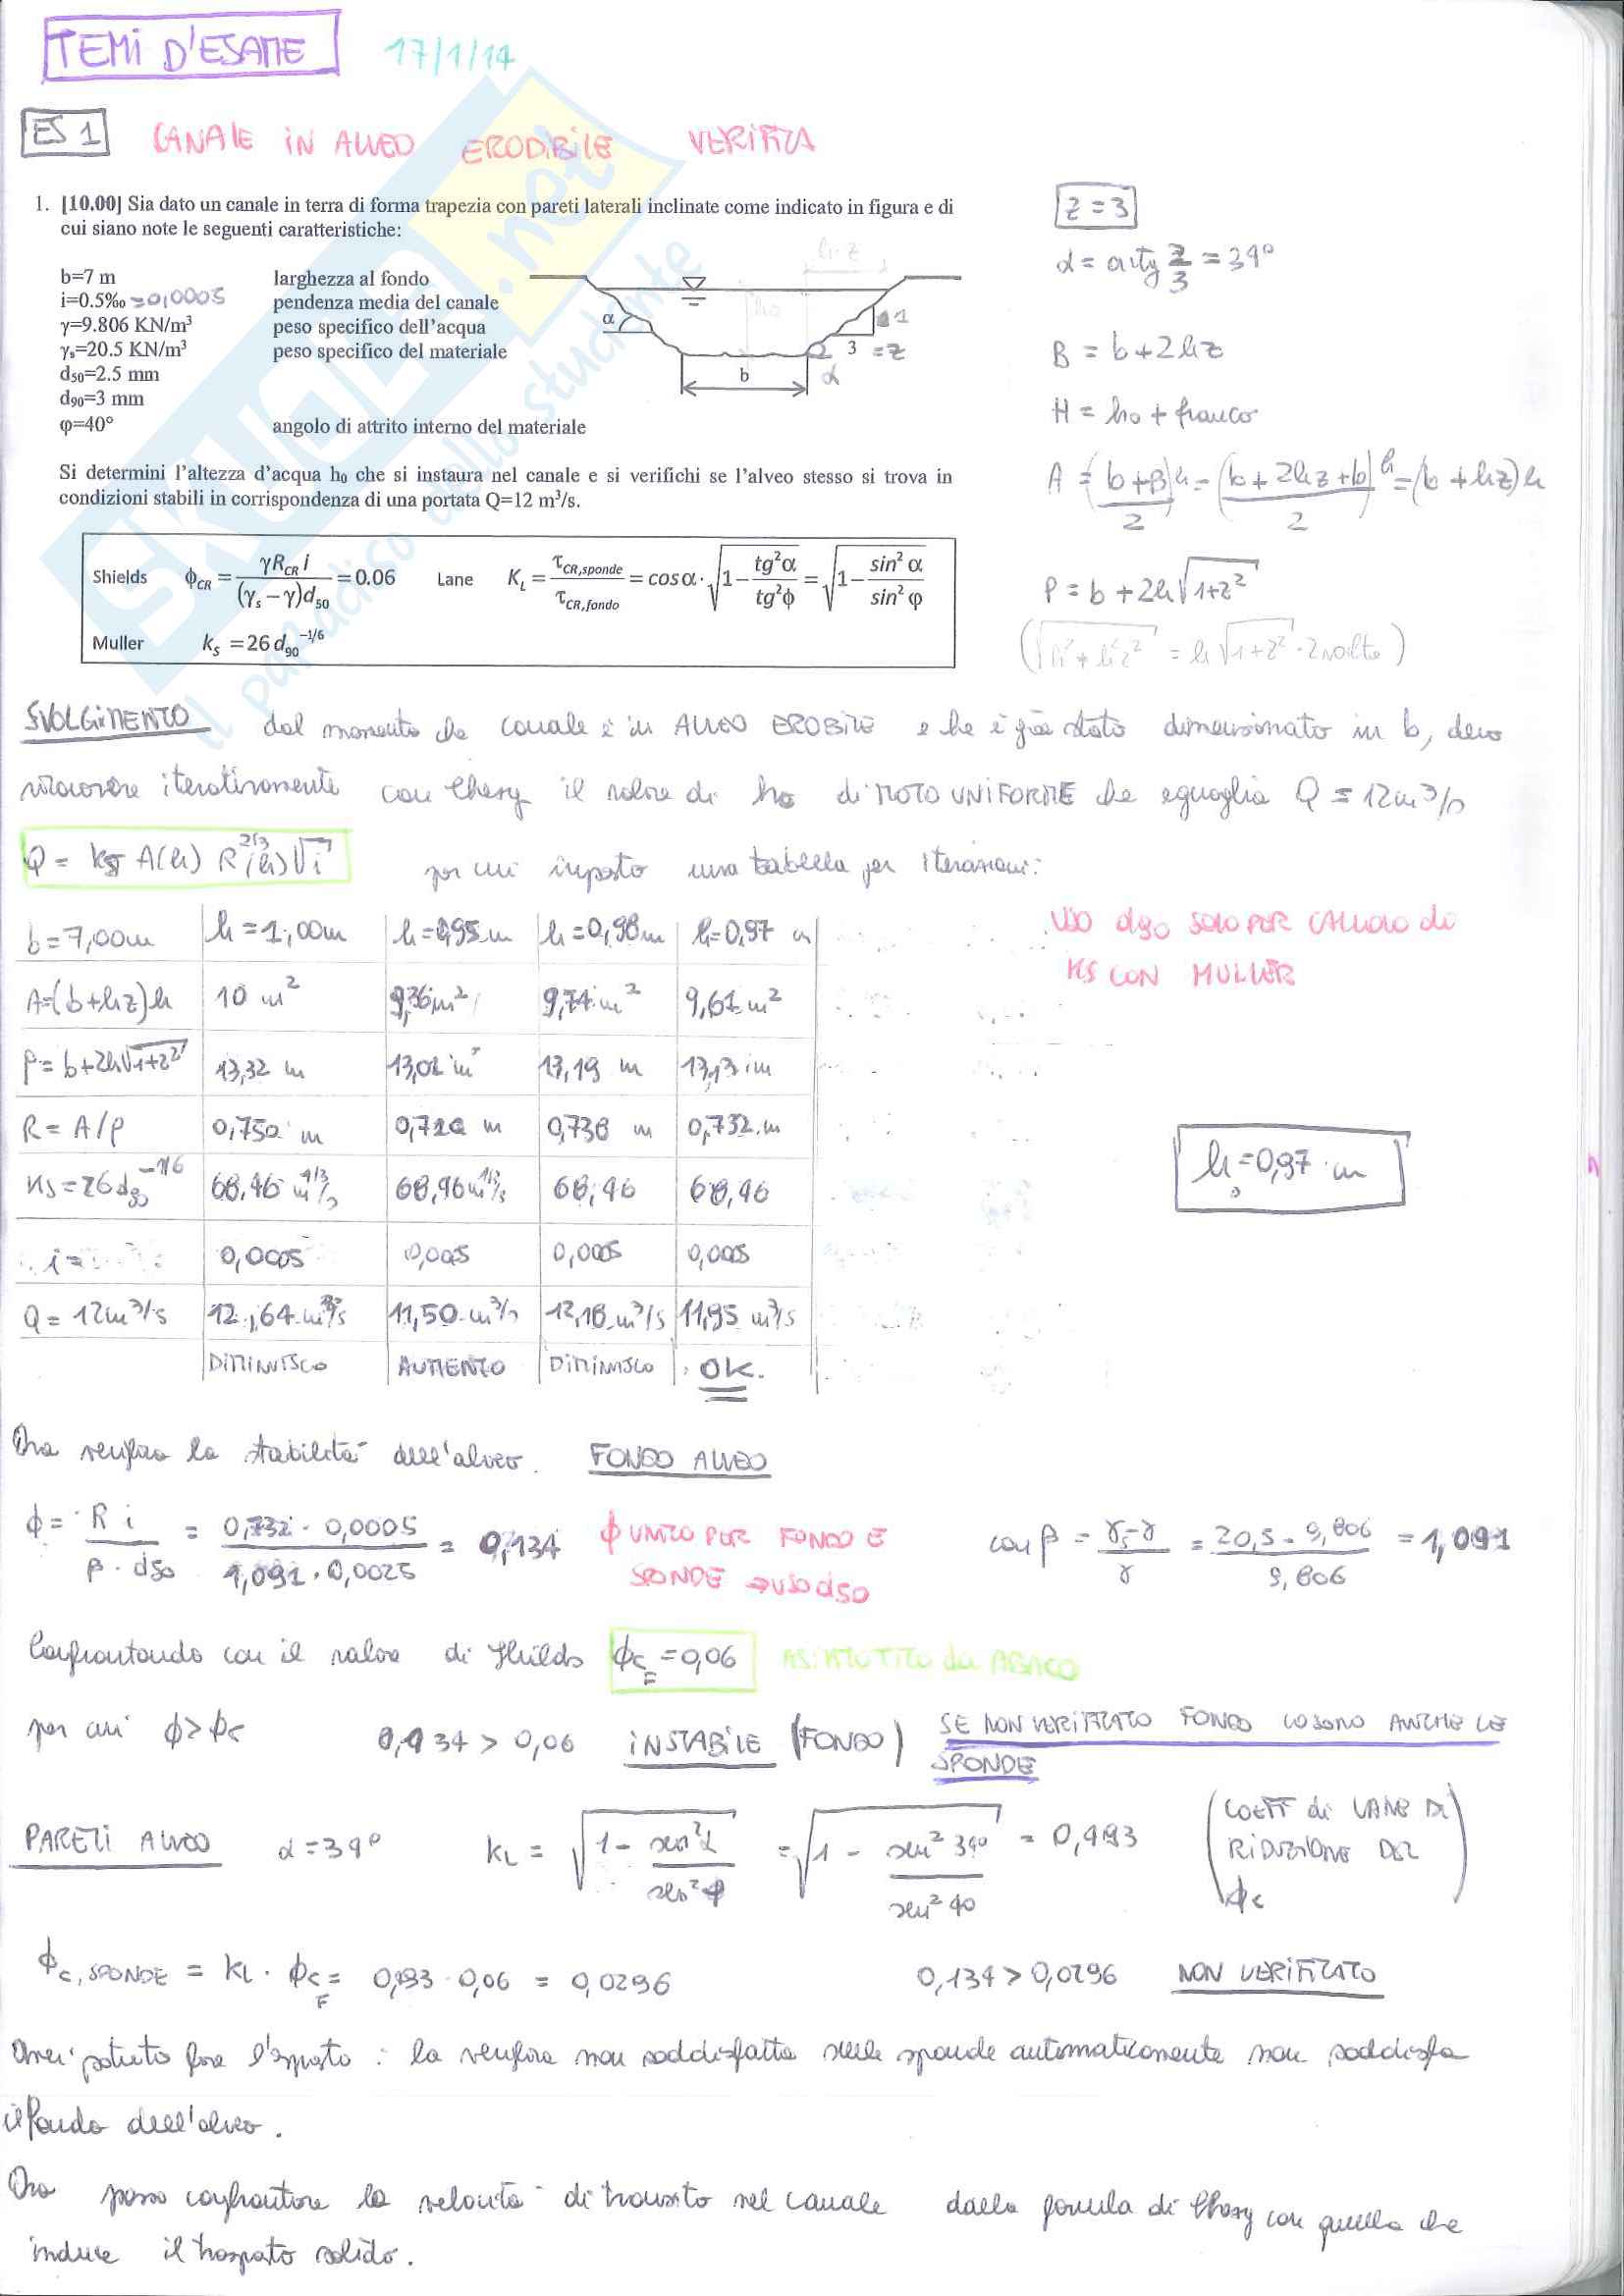 TEMI D'ESAME 17/1/14
ES 1 CANALE IN ALVEO ERODIBILE VERIFICA
1. [10.00] Sia dato un canale in terra di forma trapezia con pareti laterali inclinate come indicato in figura e di
cui siano note le seguenti caratteristiche:
b=7 m larghezza al fondo
i=0.5‰ =0,0005 pendenza media del canale
γ=9.806 KN/m³ peso specifico dell'acqua
γs=20.5 KN/m³ peso specifico del materiale
d50=2.5 mm
d90=3 mm
φ=40° angolo di attrito interno del materiale
α
h·z
h0
1
3 =z
α
b
Si determini l'altezza d'acqua h0 che si instaura nel canale e si verifichi se l'alveo stesso si trova in
condizioni stabili in corrispondenza di una portata Q=12 m³/s.
Shields ϕCR = γRCR i / (γs − γ)d50 = 0.06 Lane KL = τCR,sponde / τCR,fondo = cosα·√(1 − tg²α / tg²ϕ) = √(1 − sin²α / sin²φ)
Muller kS = 26 d90^−1/6
z = 3
α = arctg z/3 = 34°
B = b+2hz
H = h0 + franco
A = (b+B)h / 2 = (b+2hz+b)h / 2 = (b+hz)h
P = b+2h√(1+z²)
(√(h²+h²z²) = h√(1+z²) · 2 volte)
SVOLGIMENTO dal momento che canale è in ALVEO EROBILE e che è già stato dimensionato in b, devo
ricavare iterativamente con Chezy il valore di h0 di MOTO UNIFORME che eguaglia Q = 12m³/s
Q = ks A(h) R^2/3(h) √i per cui imposto una tabella per iterazioni:
b=7,00m h=1,00m h=0,95m h=0,98m h=0,97 m
A=(b+hz)h 10 m² 9,36m² 9,74m² 9,61m²
P=b+2h√(1+z²) 13,32 m 13,01 m 13,19 m 13,13 m
R=A/P 0,750 m 0,720 m 0,738 m 0,732 m
ks=26d90^−1/6 68,46 m^1/3/s 68,46m^1/3/s 68,46 68,46
i= 0,0005 0,0005 0,0005 0,0005
Q=12m³/s 12,64 m³/s 11,50 m³/s 12,18 m³/s 11,95 m³/s
DIMINUISCO AUMENTO DIMINUISCO OK.
USO d90 SOLO PER CALCOLO di
KS CON MULLER
h0=0,97 m
Ora verifico la stabilità dell'alveo. FONDO ALVEO
ϕ = R i / β · d50 = 0,732 · 0,0005 / 1,091 · 0,0025 = 0,134
ϕ UNICO PER FONDO E
SPONDE → uso d50
con β = γs−γ / γ = 20,5 − 9,806 / 9,806 = 1,091
Confrontando con il valore di Shilds ϕcF = 0,06 ASINTOTICO da ABACO
per cui ϕ>ϕc 0,134 > 0,06 INSTABILE (FONDO) SE NON VERIFICATO FONDO LO SONO ANCHE LE
SPONDE
PARETI ALVEO α=34° KL = √(1 − sen²α / sen²φ) = √(1 − sen²34° / sen²40) = 0,493
(COEFF di LANE DI
RIDUZIONE DEL
ϕc)
ϕc,SPONDE = KL · ϕcF = 0,493 · 0,06 = 0,0296 0,134 > 0,0296 NON VERIFICATO
Avrei potuto fare l'opposto : la verifica non soddisfatta sulle sponde automaticamente non soddisfa
il fondo dell'alveo.
Ora posso confrontare la velocità di transito nel canale dalla formula di Chezy con quella che
induce il trasporto solido.